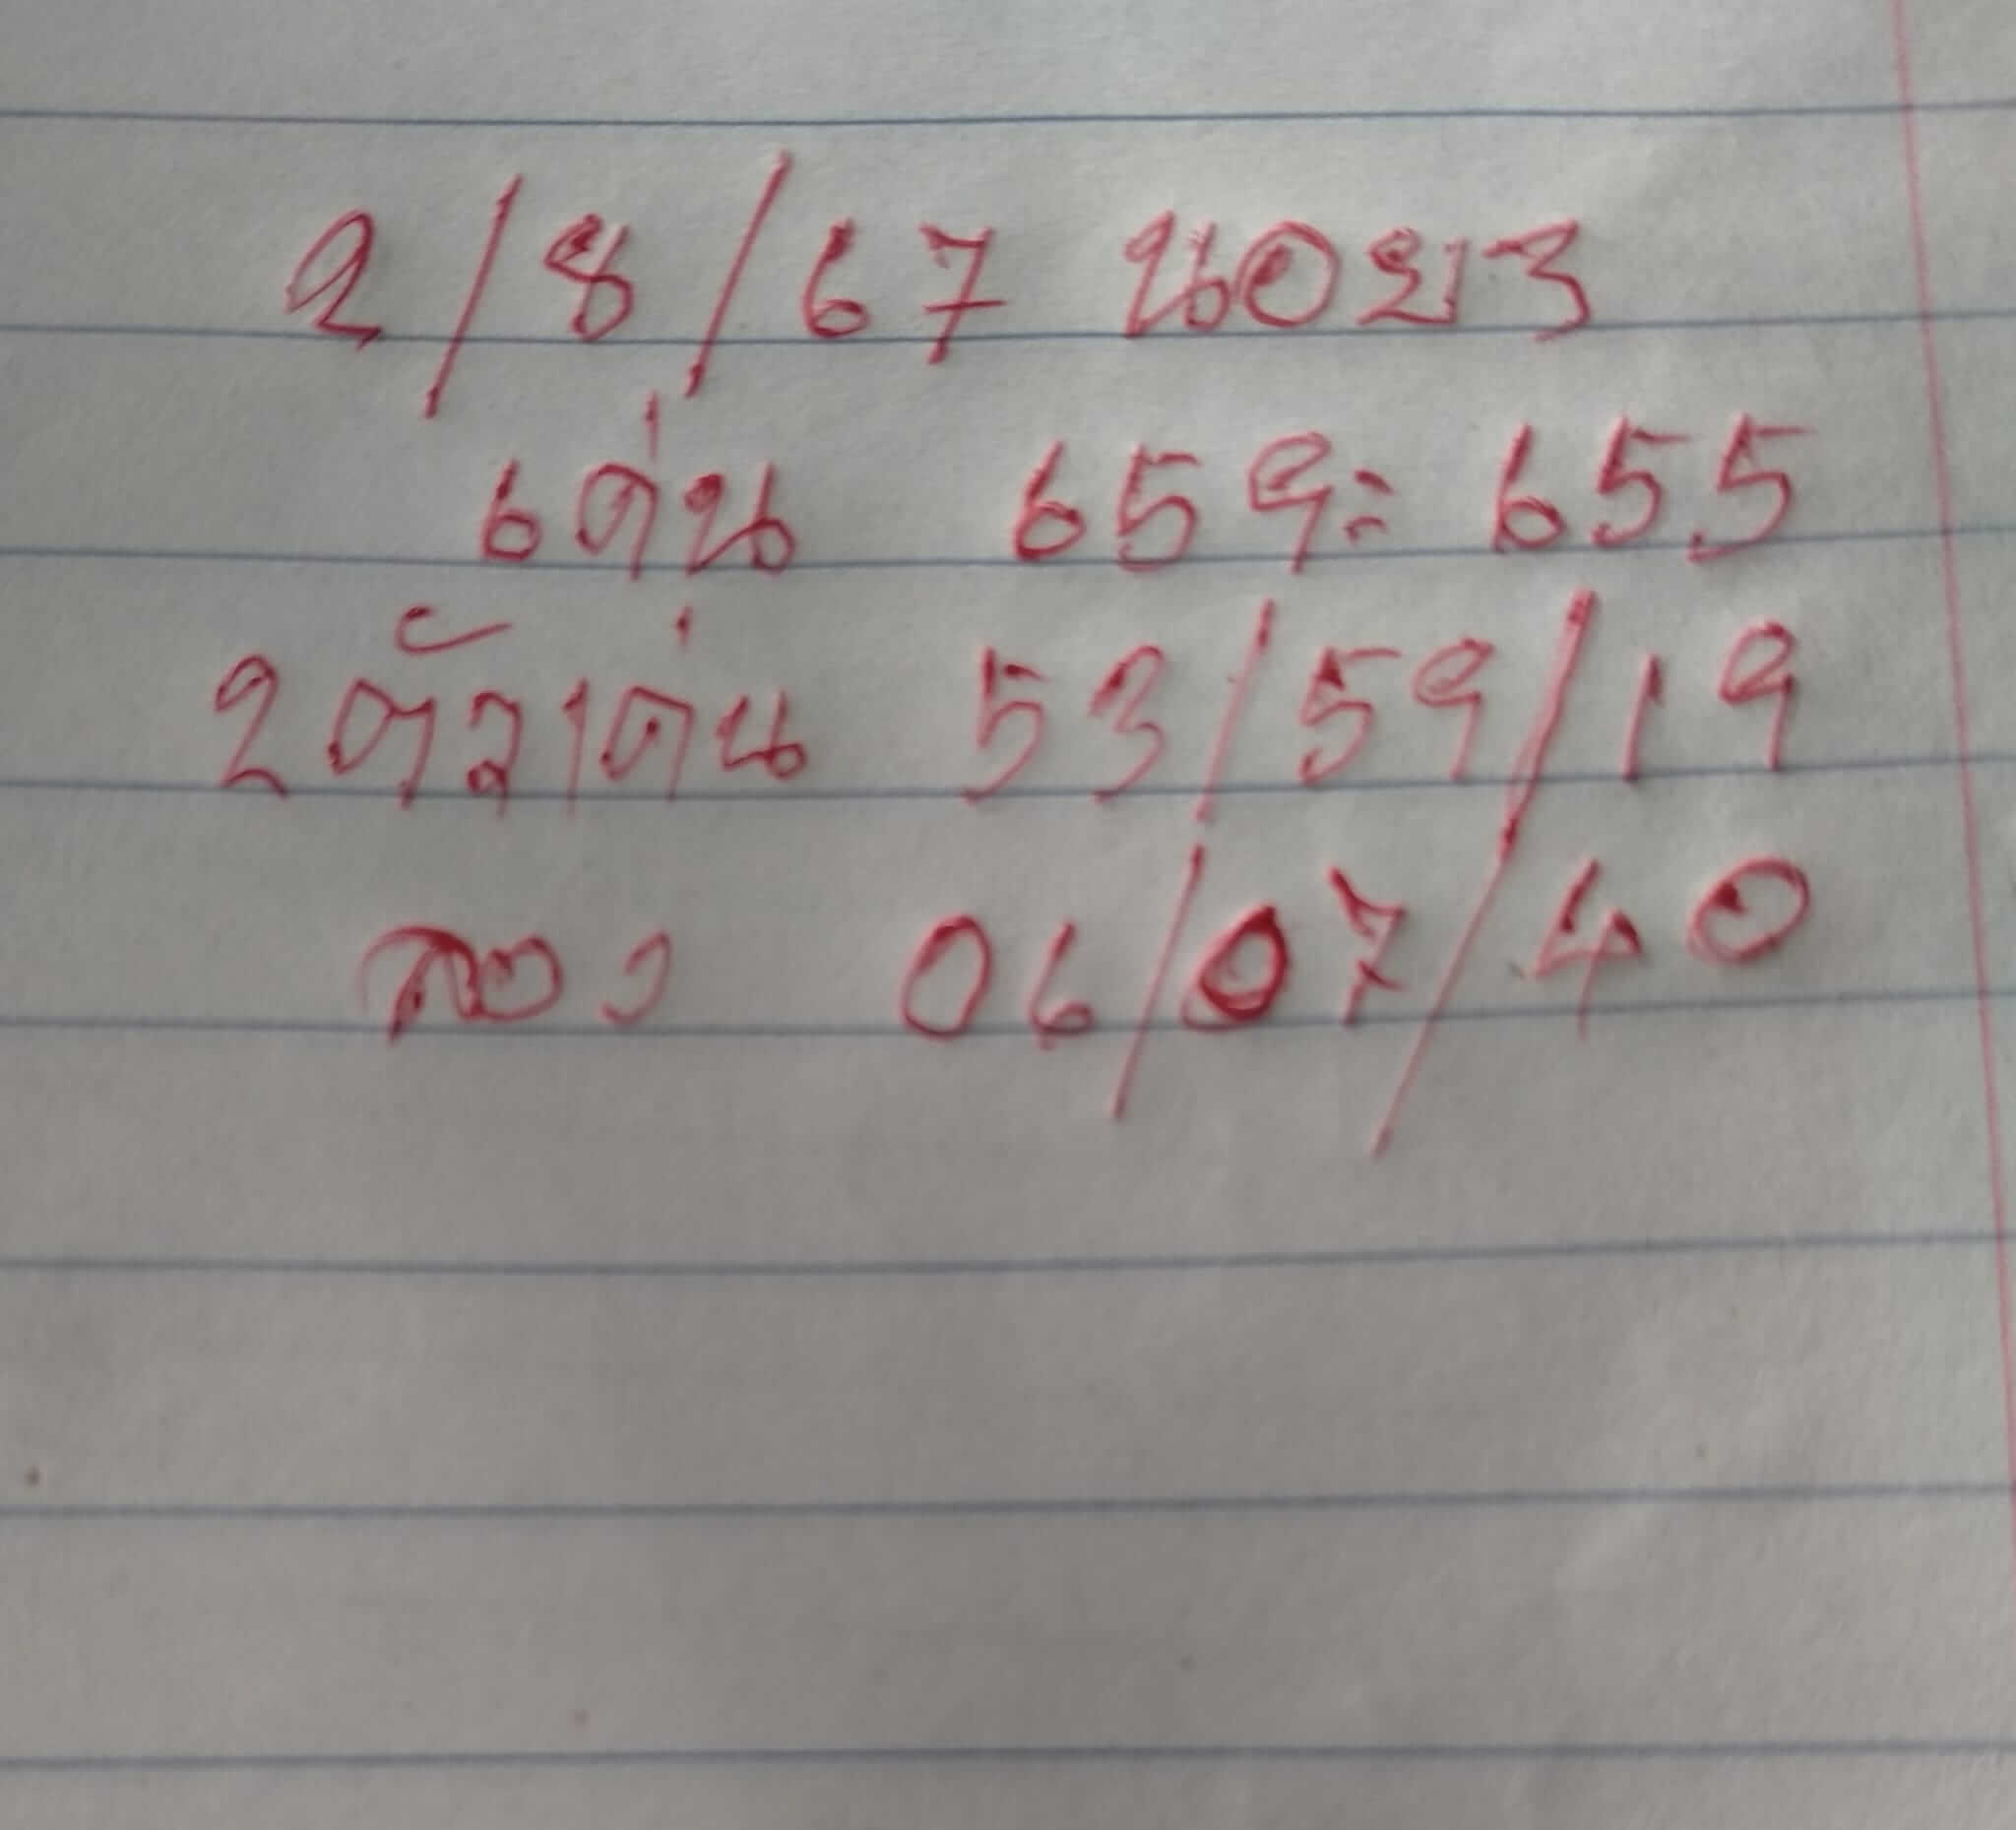 2/8/67 นอยว
เด่น 659= 655
2ตัวเด่น 53/59/19
ลอง 06/07/40